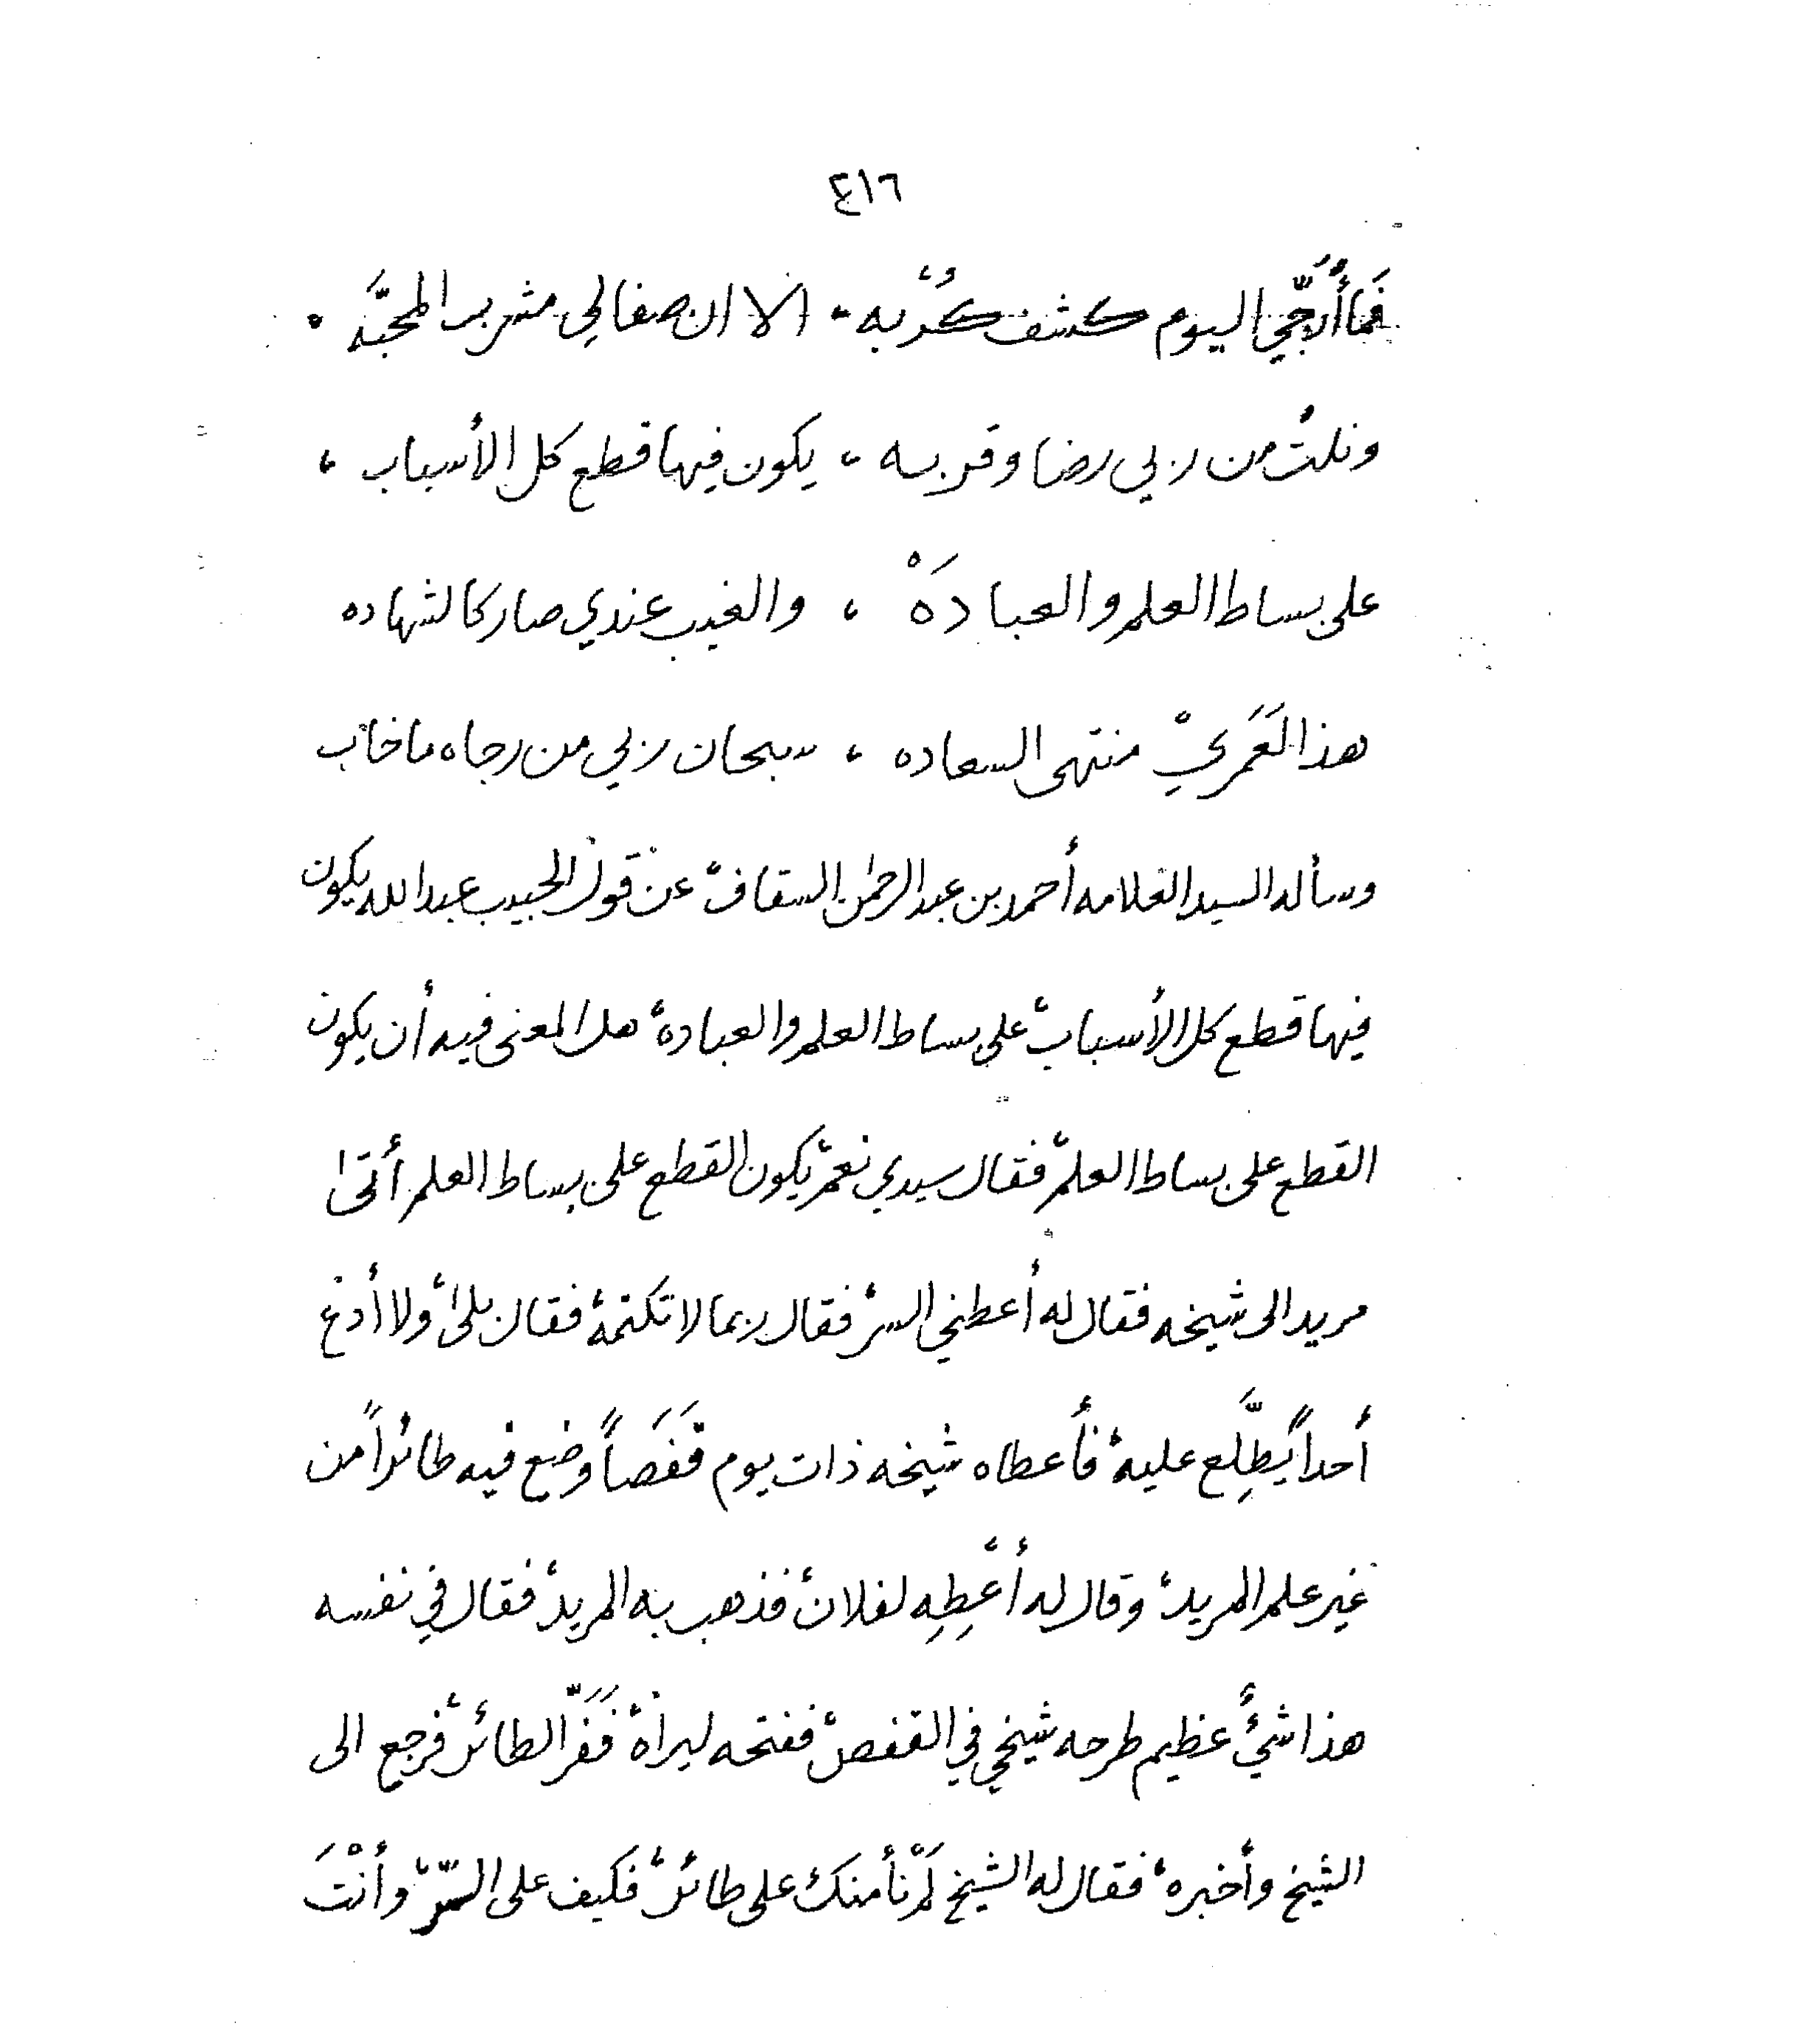 ٤١٦
فَمَا أُرَجِّي اليوم كشف كُرْبه ، الا ان صفا لِي مشرب المحبَّه ،
ونلتُ من ربي رضا وقربه ، يكون فيها قطع كل الأسباب ،
على بساط العلم والعبادَهْ ، والغيب عندي صار كالشهاده
هذا لَعَمَريْ منتهى السعاده ، سبحان ربي من رجاه ما خاب
وسأله السيد العلامه أحمد بن عبدالرحمٰن السقاف، عن قول الحبيب عبدالله يكون
فيها قطع كل الأسباب، على بساط العلم والعبادة، هل المعنى فيه أن يكون
القطع على بساط العلم، فقال سيدي نعم، يكون القطع على بساط العلم، أتىٰ
مريد الى شيخه فقال له أعطني السر، فقال ربما لا تكتمه، فقال بلىٰ، ولا أدع
أحداً يَطَّلِع عليه، فأعطاه شيخه ذات يوم قَفَصاً وضع فيه طائراً من
غير علم المريد، وقال له أعْطِهِ لفلان، فذهب به المريد، فقال في نفسه
هذا شيءٌ عظيم طرحه شيخي في القفص، ففتحه ليراه، فَفَرَّ الطائر، فرجع الى
الشيخ وأخبره، فقال له الشيخ لَمْ نأمنك على طائر، فكيف على السّر، وأنْتَ